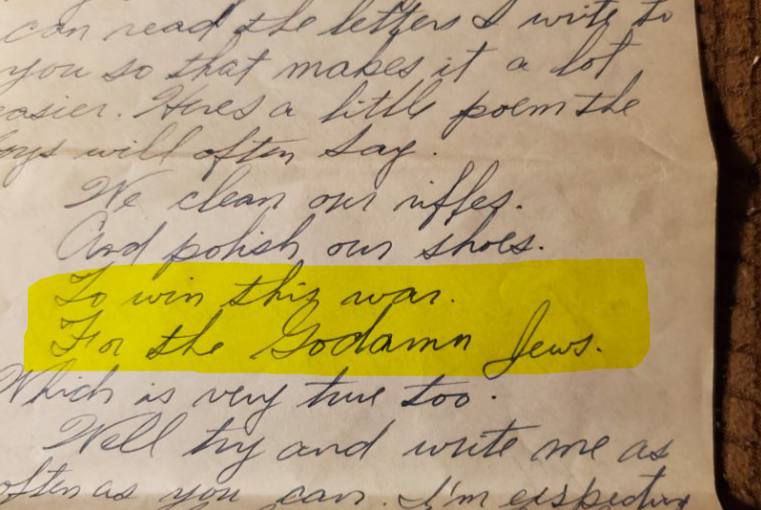 can read the letters I write to
you so that makes it a lot
easier. Heres a little poem the
boys will often say.
We clean our riffles.
And polish our shoes.
To win this war.
For the Godamn Jews.
Which is very true too.
Well try and write me as
often as you can. I'm expecting